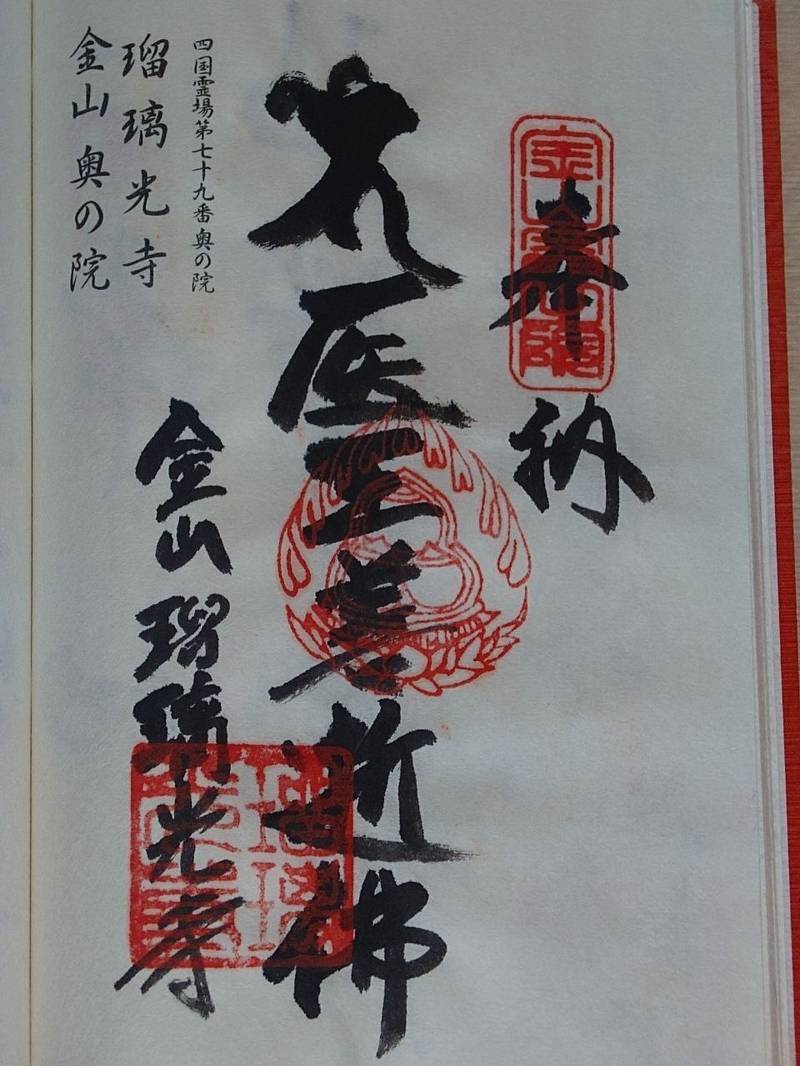 奉納
大医王善逝佛
四国霊場第七十九番 奥の院
瑠璃光寺
金山 奥の院
金山 瑠璃光寺